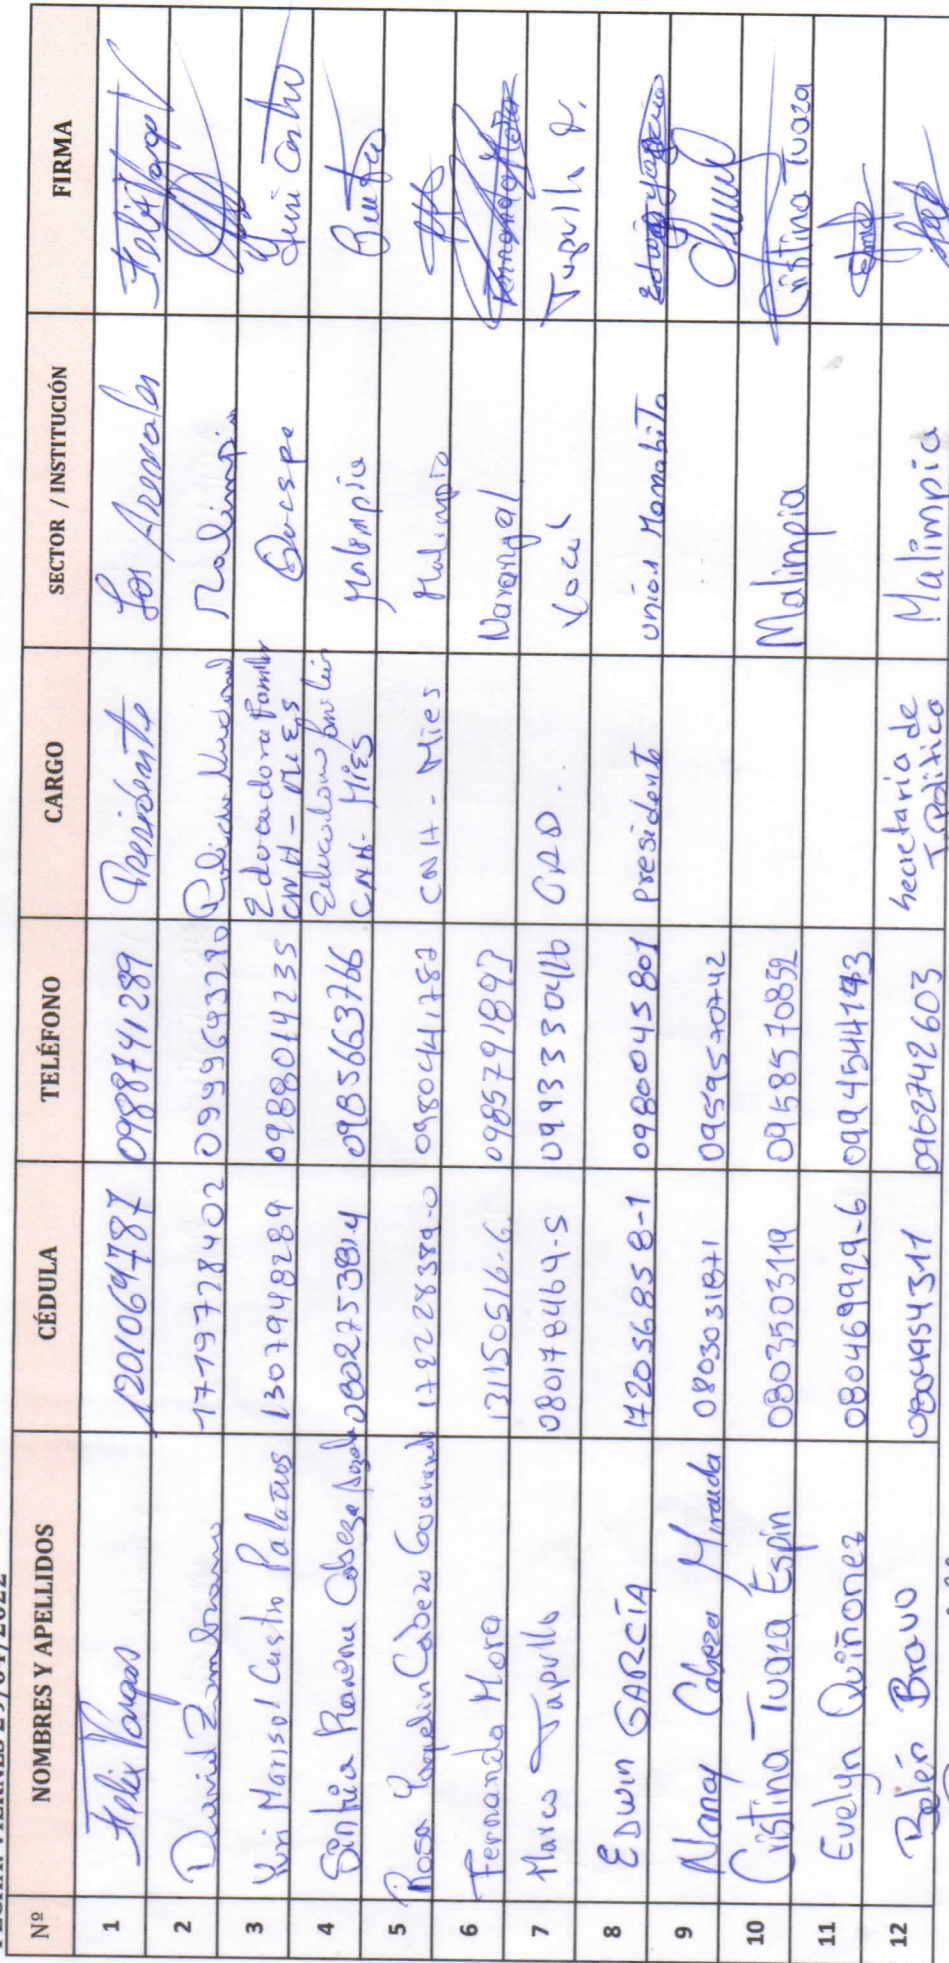 VIERNES 29/04/2022
Nº NOMBRES Y APELLIDOS CÉDULA TELÉFONO CARGO SECTOR / INSTITUCIÓN FIRMA
1 Felix Vargas 1201069787 0988741289 Presidente Los Arenales Felix Vargas V
2 David Zambrano 1719778402 0999643290 Policia Nacional Malimpia
3 Yuri Marisol Castro Palacios 1307948289 0988014235 Educadora Familiar CNH - MIES Quespe Yuri Castro
4 Sintia Cabeza 080275389-4 0985663766 Educadora Familiar CNH - MIES Malimpia
5 Rosa Cabeza 172228389-0 0980441782 CNH - Mies Malimpia
6 Fernanda Mora 131150516-6 0985791893 Naranjal
7 Marco Tapullo 080178464-5 GAD Tapullo
8 EDWIN GARCÍA 172056858-1 0980045801 Presidente Union Manabita
9 Nancy Cabeza Miranda 0803031871 0959570742
10 Cristina Tuaza Espín 0803503119 0958570859 Malimpia Cristina Tuaza
11 Evelyn Quiñonez 080469929-6
12 Belén Bravo 0804954311 0962742603 Secretaria de T. Político Malimpia